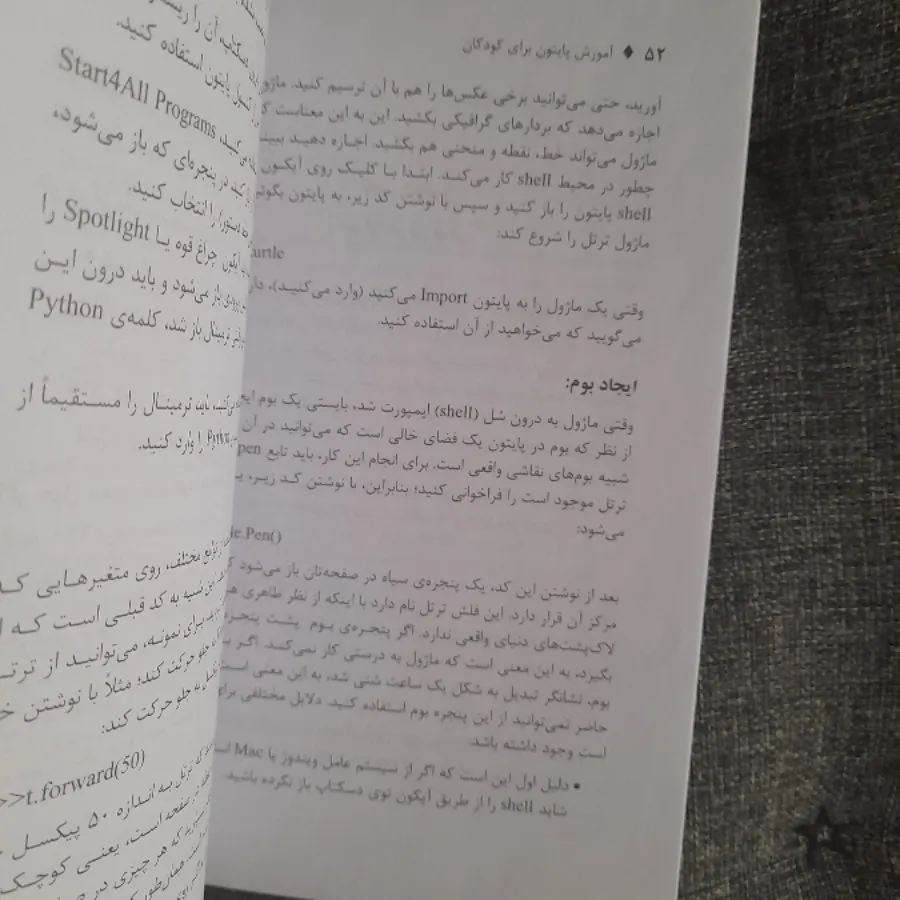 ۵۲ ♦ آموزش پایتون برای کودکان
آورید، حتی می‌توانید برخی عکس‌ها را هم با آن ترسیم کنید. ماژول
اجازه می‌دهد که بردارهای گرافیکی بکشید. این به این معناست که
ماژول می‌تواند خط، نقطه و منحنی هم بکشید. اجازه دهید ببینیم
چطور در محیط shell کار می‌کند. ابتدا با کلیک روی آیکون
shell پایتون را باز کنید و سپس با نوشتن کد زیر، به پایتون بگویید
ماژول ترتل را شروع کند:
urtle
وقتی یک ماژول را به پایتون Import می‌کنید (وارد می‌کنید)،
می‌گویید که می‌خواهید از آن استفاده کنید.
ایجاد بوم:
وقتی ماژول به درون شل (shell) ایمپورت شد، بایستی یک بوم
از نظر که بوم در پایتون یک فضای خالی است که می‌توانید در آن
شبیه بوم‌های نقاشی واقعی است. برای انجام این کار، باید تابع pen
ترتل موجود است را فراخوانی کنید؛ بنابراین، با نوشتن کد زیر،
می‌شود:
le.Pen()
بعد از نوشتن این کد، یک پنجره‌ی سیاه در صفحه‌تان باز می‌شود
مرکز آن قرار دارد. این فلش ترتل نام دارد با اینکه از نظر ظاهری
لاک‌پشت‌های دنیای واقعی ندارد. اگر پنجره‌ی بوم پشت پنجره
بگیرد، به این معنی است که ماژول به درستی کار نمی‌کند. اگر
بوم، نشانگر تبدیل به شکل یک ساعت شنی شد، به این معنی است
حاضر نمی‌توانید از این پنجره بوم استفاده کنید. دلایل مختلفی برای
است وجود داشته باشد:
• دلیل اول این است که اگر از سیستم عامل ویندوز یا Mac
شاید shell را از طریق آیکون توی دسکتاپ باز نکرده باشید.
دسکتاپ، آن را
پایتون استفاده کنید.
Start4All Programs
کنید در پنجره‌ای که باز می‌شود،
را انتخاب کنید.
آیکون چراغ قوه یا Spotlight را
باز می‌شود و باید درون این
ترمینال باز شد، کلمه‌ی Python
باید ترمینال را مستقیماً از
را وارد کنید.
توابع مختلف، روی متغیرهایی که
این شبیه به کد قبلی است که
برای نمونه، می‌توانید از
به جلو حرکت کند؛ مثلاً با نوشتن
به جلو حرکت کند:
>>t.forward(50)
که ترتل به اندازه ۵۰ پیکسل
صفحه است، یعنی کوچک
که هر چیزی در